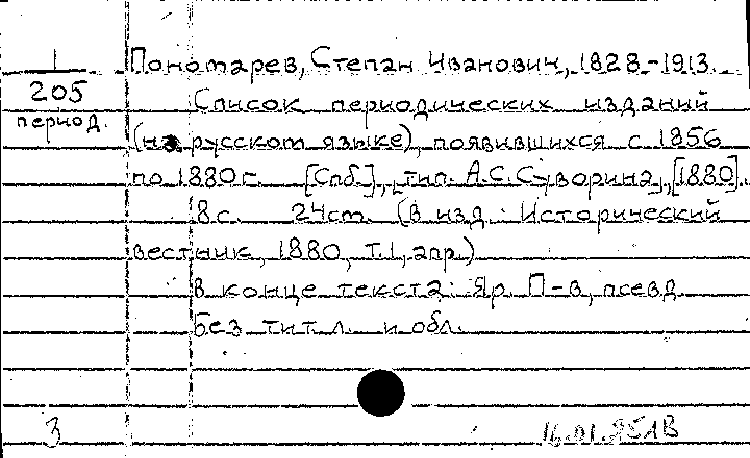 1
205
период.
Пономарев, Степан Иванович, 1828-1913.
Список периодических изданий
(на русском языке), появившихся с 1856
по 1880 г. [Спб.], тип. А.С.Суворина, [1880].
8 с. 24 cm. (В изд.: Исторический
вестник, 1880, т.1, апр.)
В конце текста: Яр. П-в, псевд.
Без тит.л. и обл.
3
16.01.95